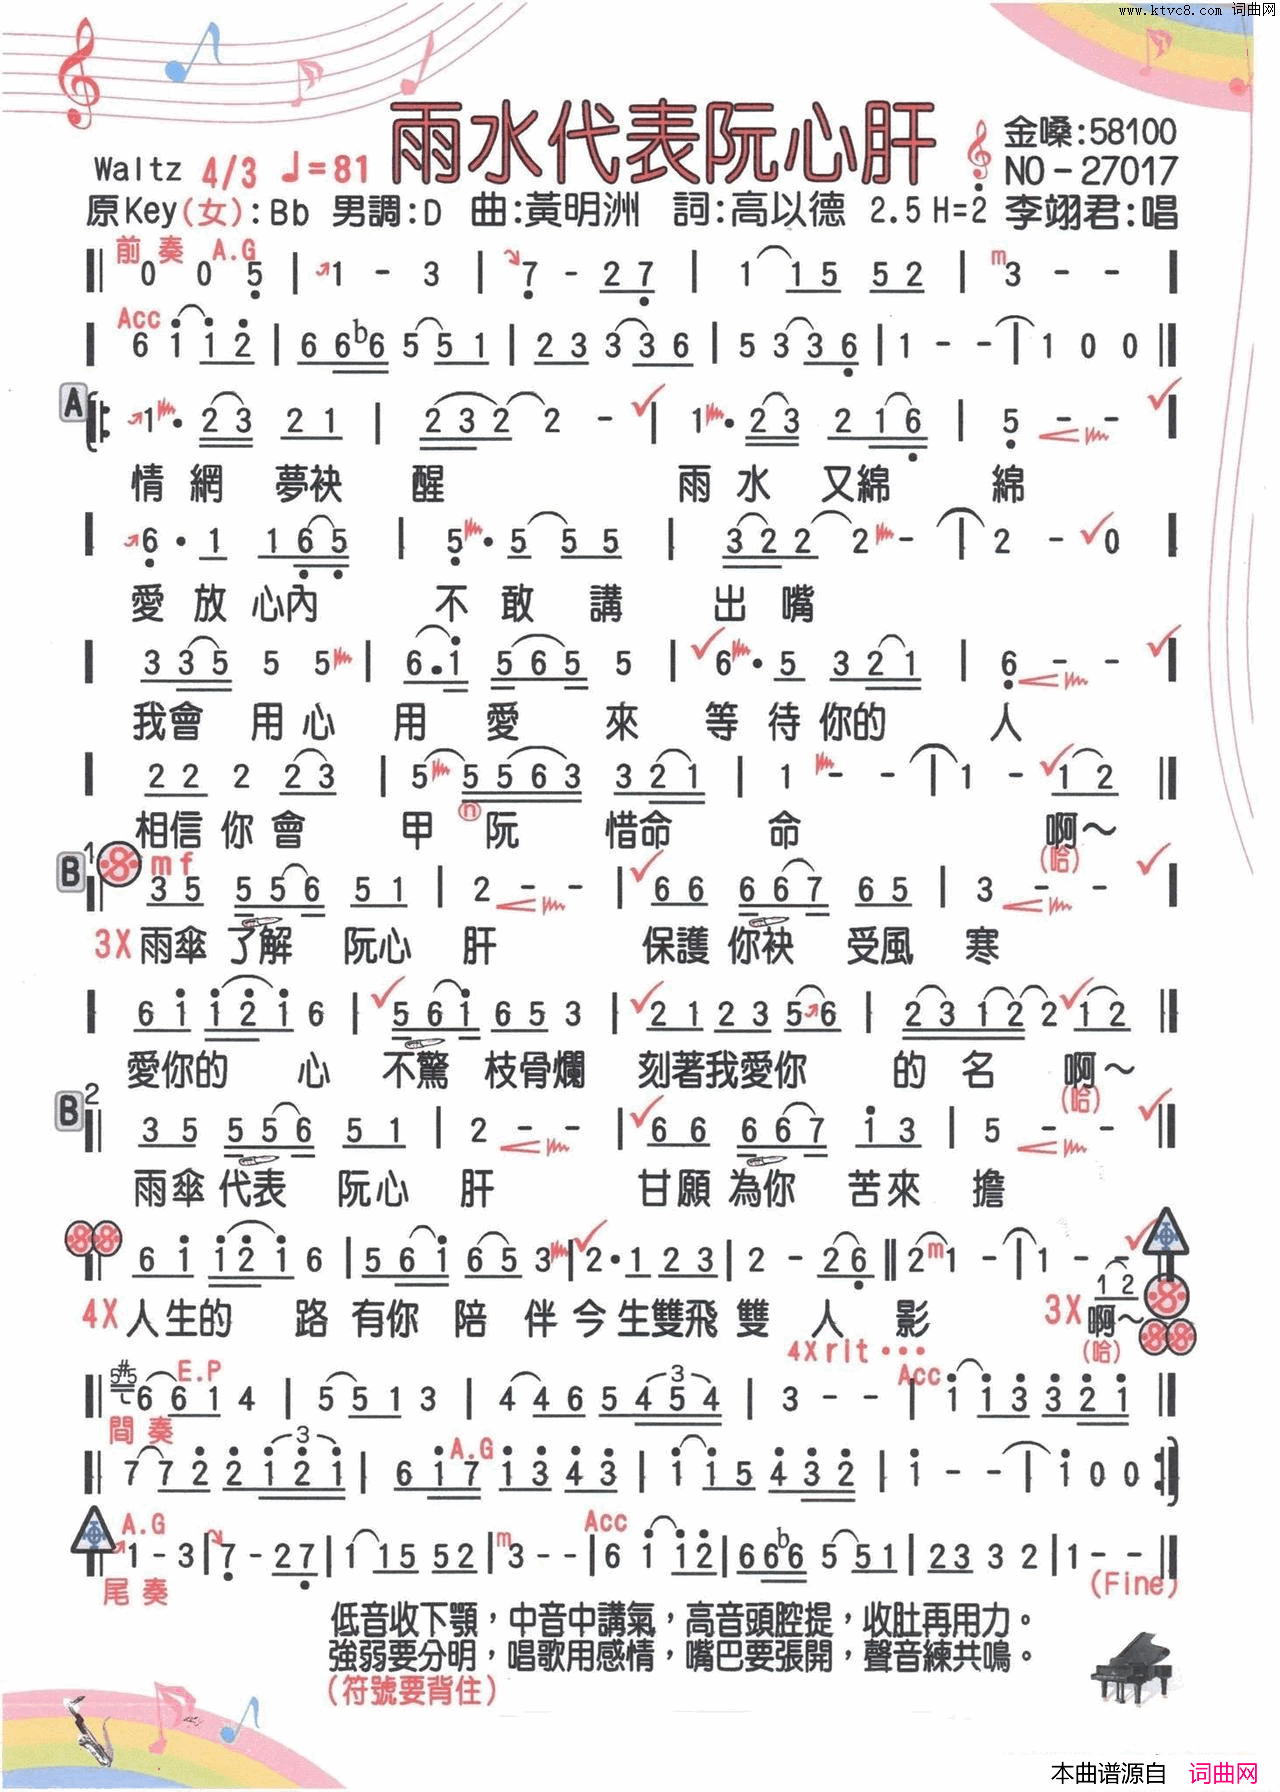 www.ktvc8.com 词曲网
雨水代表阮心肝
金嗓:58100
NO-27017
Waltz 4/3 ♩=81
原Key(女):Bb 男調:D 曲:黃明洲 詞:高以德 2.5 H=2̇ 李翊君:唱
前奏 A.G
0 0 5 | 1 - 3 | 7 - 2 7 | 1 1 5 5 2 | m 3 - -
Acc
6 1 1 2 | 6 6 b6 5 5 1 | 2 3 3 3 6 | 5 3 3 6 | 1 - - | 1 0 0
A
1 · 2 3 2 1 | 2 3 2 2 - | 1 · 2 3 2 1 6 | 5 - -
情網 夢袂 醒 雨水 又綿 綿
6 · 1 1 6 5 | 5 · 5 5 5 | 3 2 2 2 - | 2 - 0
愛放心內 不敢講 出嘴
3 3 5 5 5 | 6 · 1 5 6 5 5 | 6 · 5 3 2 1 | 6 - -
我會 用心 用愛來 等待你的 人
2 2 2 2 3 | 5 5 5 6 3 3 2 1 | 1 - - | 1 - 1 2
相信你會 甲 ⓝ 阮 惜命 命 啊～
(哈)
B 1 mf
3 5 5 5 6 5 1 | 2 - - | 6 6 6 6 7 6 5 | 3 - -
3X 雨傘 了解 阮心 肝 保護 你袂 受風 寒
6 1 1 2 1 6 | 5 6 1 6 5 3 | 2 1 2 3 5 6 | 2 3 1 2 2 1 2
愛你的 心 不驚 枝骨爛 刻著我愛你 的名 啊～
(哈)
B 2
3 5 5 5 6 5 1 | 2 - - | 6 6 6 6 7 1 3 | 5 - -
雨傘 代表 阮心 肝 甘願 為你 苦來 擔
6 1 1 2 1 6 | 5 6 1 6 5 3 | 2 · 1 2 3 | 2 - 2 6 || 2 m 1 - | 1 - -
1 2
4X 人生的 路 有你 陪伴 今生雙飛雙 人 影 3X 啊～
4X rit ··· (哈)
E.P Acc
#5 5 6 6 1 4 | 5 5 1 3 | 4 4 6 5 4 5 4 | 3 - - | 1 1 3 3 2 1
間奏
A.G
7 7 2 2 1 2 1 | 6 1 7 1 3 4 3 | 1 1 5 4 3 2 | 1 - - | 1 0 0
A.G Acc
1 - 3 | 7 - 2 7 | 1 1 5 5 2 | m 3 - - | 6 1 1 2 | 6 6 b6 5 5 1 | 2 3 3 2 | 1 - -
尾奏 (Fine)
低音收下顎，中音中講氣，高音頭腔提，收肚再用力。
強弱要分明，唱歌用感情，嘴巴要張開，聲音練共鳴。
(符號要背住)
本曲谱源自 词曲网